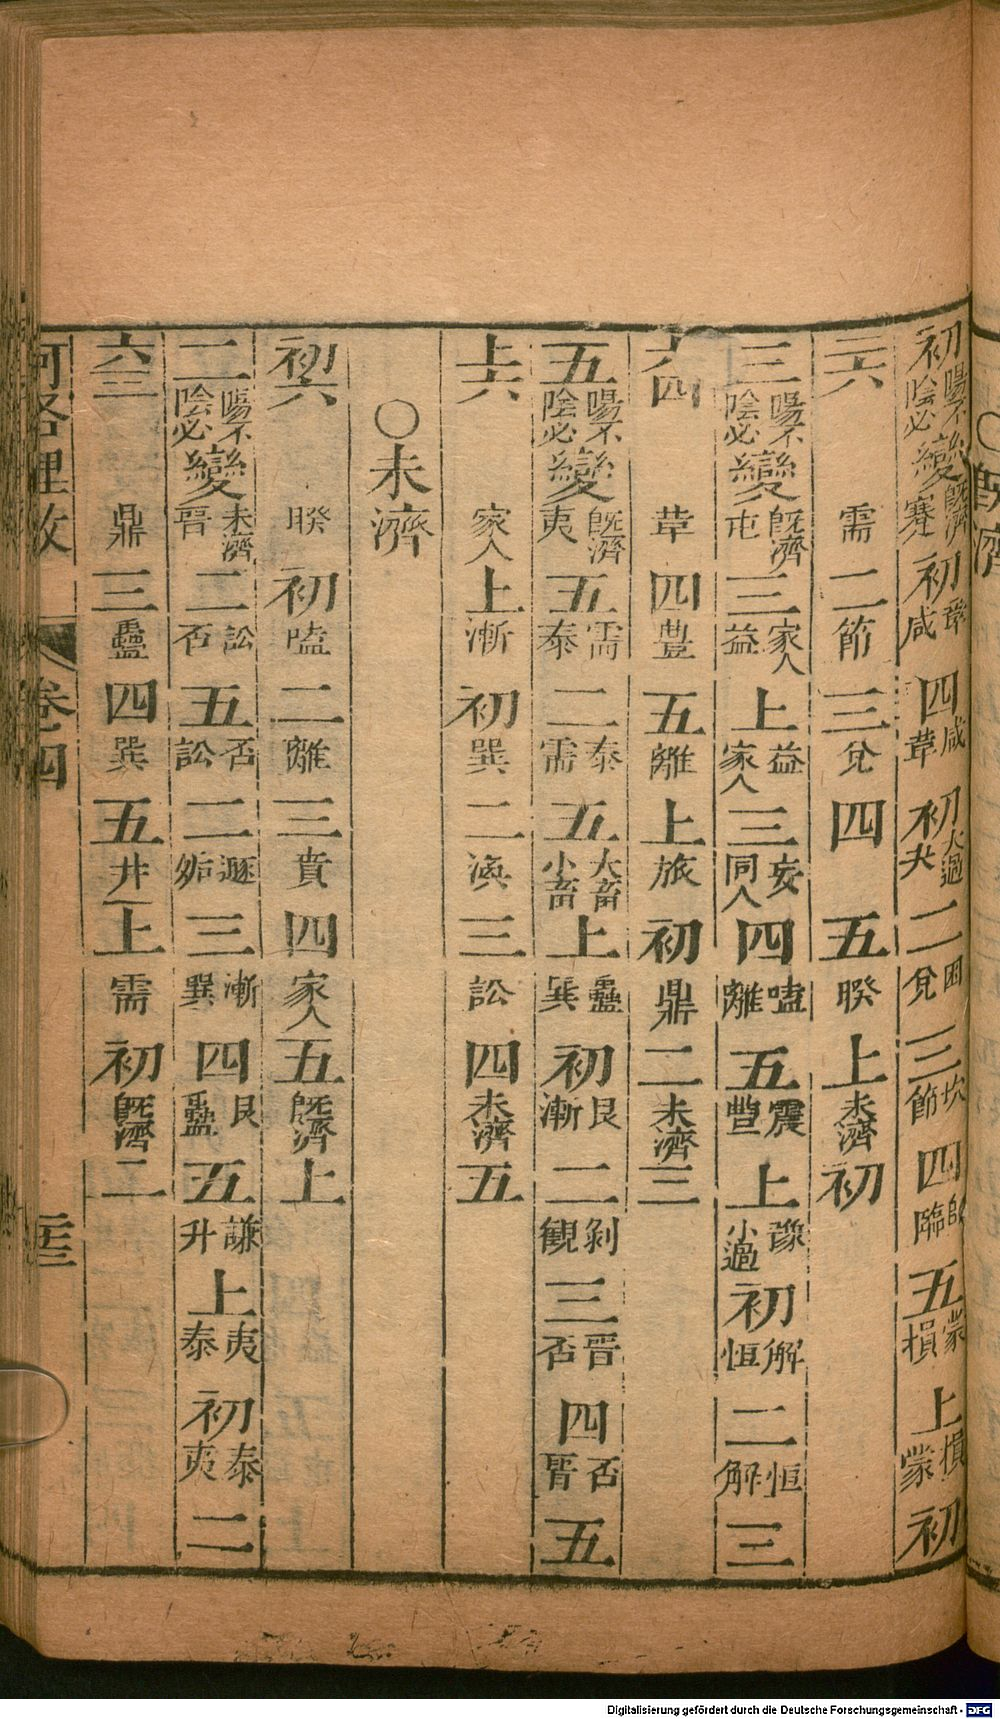 ○既濟
初陽不陰必變既濟蹇初革咸四咸革初大過夬二困兌三坎節四師臨五蒙損上損蒙初
二六需二節三兌四五睽上未濟初
三陽不陰必變既濟屯三家人益上益家人三妄同人四嗑離五震豊上豫小過初解恒二恒解三
六四革四豊五離上旅初鼎二未濟三
五陽不陰必變既濟夷五需泰二泰需五大畜小畜上蠱巽初艮漸二剝觀三晋否四否晋五
上六家人上漸初巽二渙三訟四未濟五
○未濟
初六睽初嗑二離三賁四家人五既濟上
二陽不陰必變未濟晋二訟否五否訟二遯姤三漸巽四艮蠱五謙升上夷泰初泰夷二
六三鼎三蠱四巽五井上需初既濟二
河洛理数 卷四
Digitalisierung gefördert durch die Deutsche Forschungsgemeinschaft - DFG